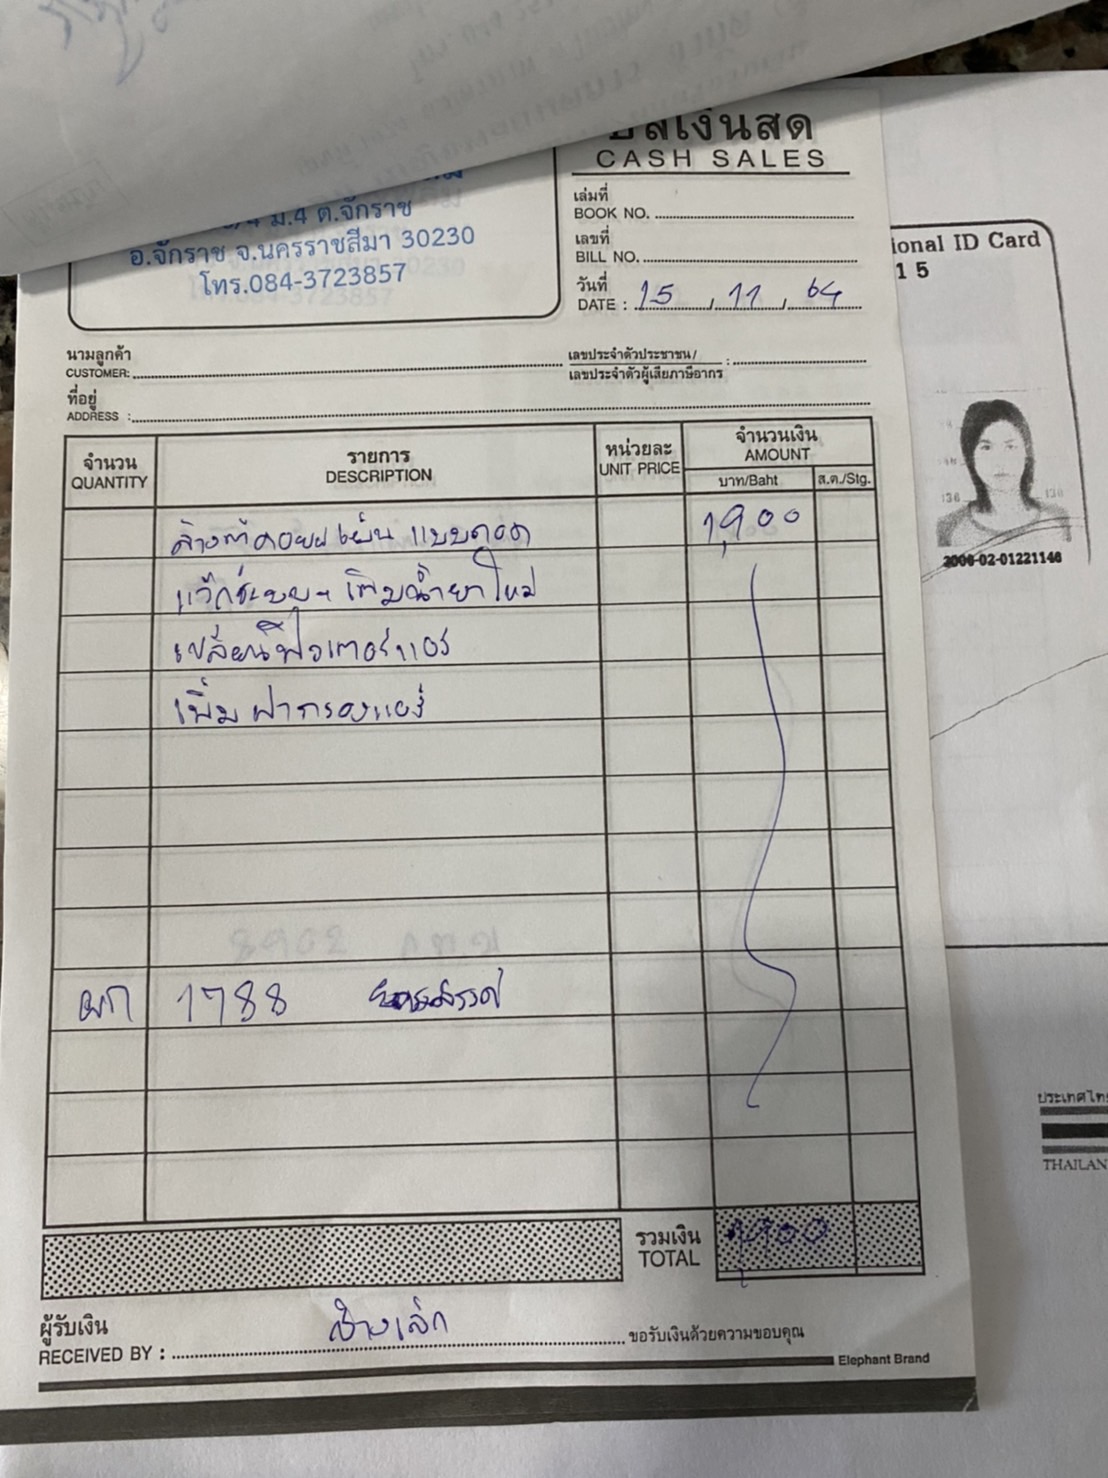 บิลเงินสด
CASH SALES
ม.4 ต.จักราช
อ.จักราช จ.นครราชสีมา 30230
โทร.084-3723857
เล่มที่
BOOK NO.
เลขที่
BILL NO.
วันที่
DATE : 15 / 11 / 64
นามลูกค้า
CUSTOMER:
เลขประจำตัวประชาชน/
เลขประจำตัวผู้เสียภาษีอากร :
ที่อยู่
ADDRESS :
จำนวน รายการ หน่วยละ จำนวนเงิน
QUANTITY DESCRIPTION UNIT PRICE AMOUNT
บาท/Baht ส.ต./Stg.
ล้างตู้คอยล์เย็น แบบถอด 1,900
แว๊กระบบ เติมน้ำยาใหม่
เปลี่ยนฟิวเตอร์แอร์
เพิ่ม ฝากรองแอร์
ผก 1788
รวมเงิน
TOTAL 1,900
ผู้รับเงิน
RECEIVED BY : ช่างเล็ก ขอรับเงินด้วยความขอบคุณ
Elephant Brand
ional ID Card
1 5
2006-02-01221146
ประเทศไทย
THAILAN